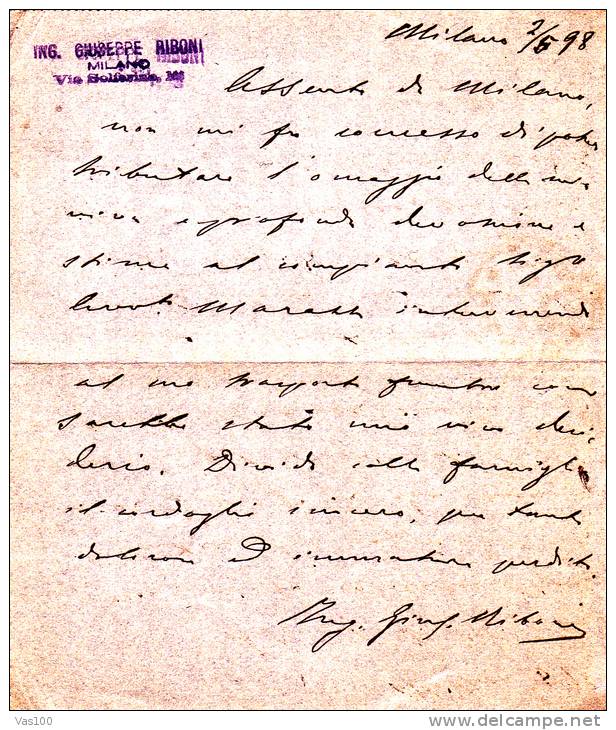 Milano 2/5 98
ING. GIUSEPPE RIBONI
MILANO
Via Solferino,
Assente da Milano,
non mi fu concesso di poter
tributare l'omaggio della mia
viva e profonda devozione e
stima al compianto Sigr
Cavr. Marazzi intervenendo
al suo trasporto funebre come
sarebbe stato mio vivo desi-
derio. Divido colla famiglia
il cordoglio sincero, per tanto
dolorosa ed immatura perdita.
Ing. Gius. Riboni
Vas100
www.delcampe.net